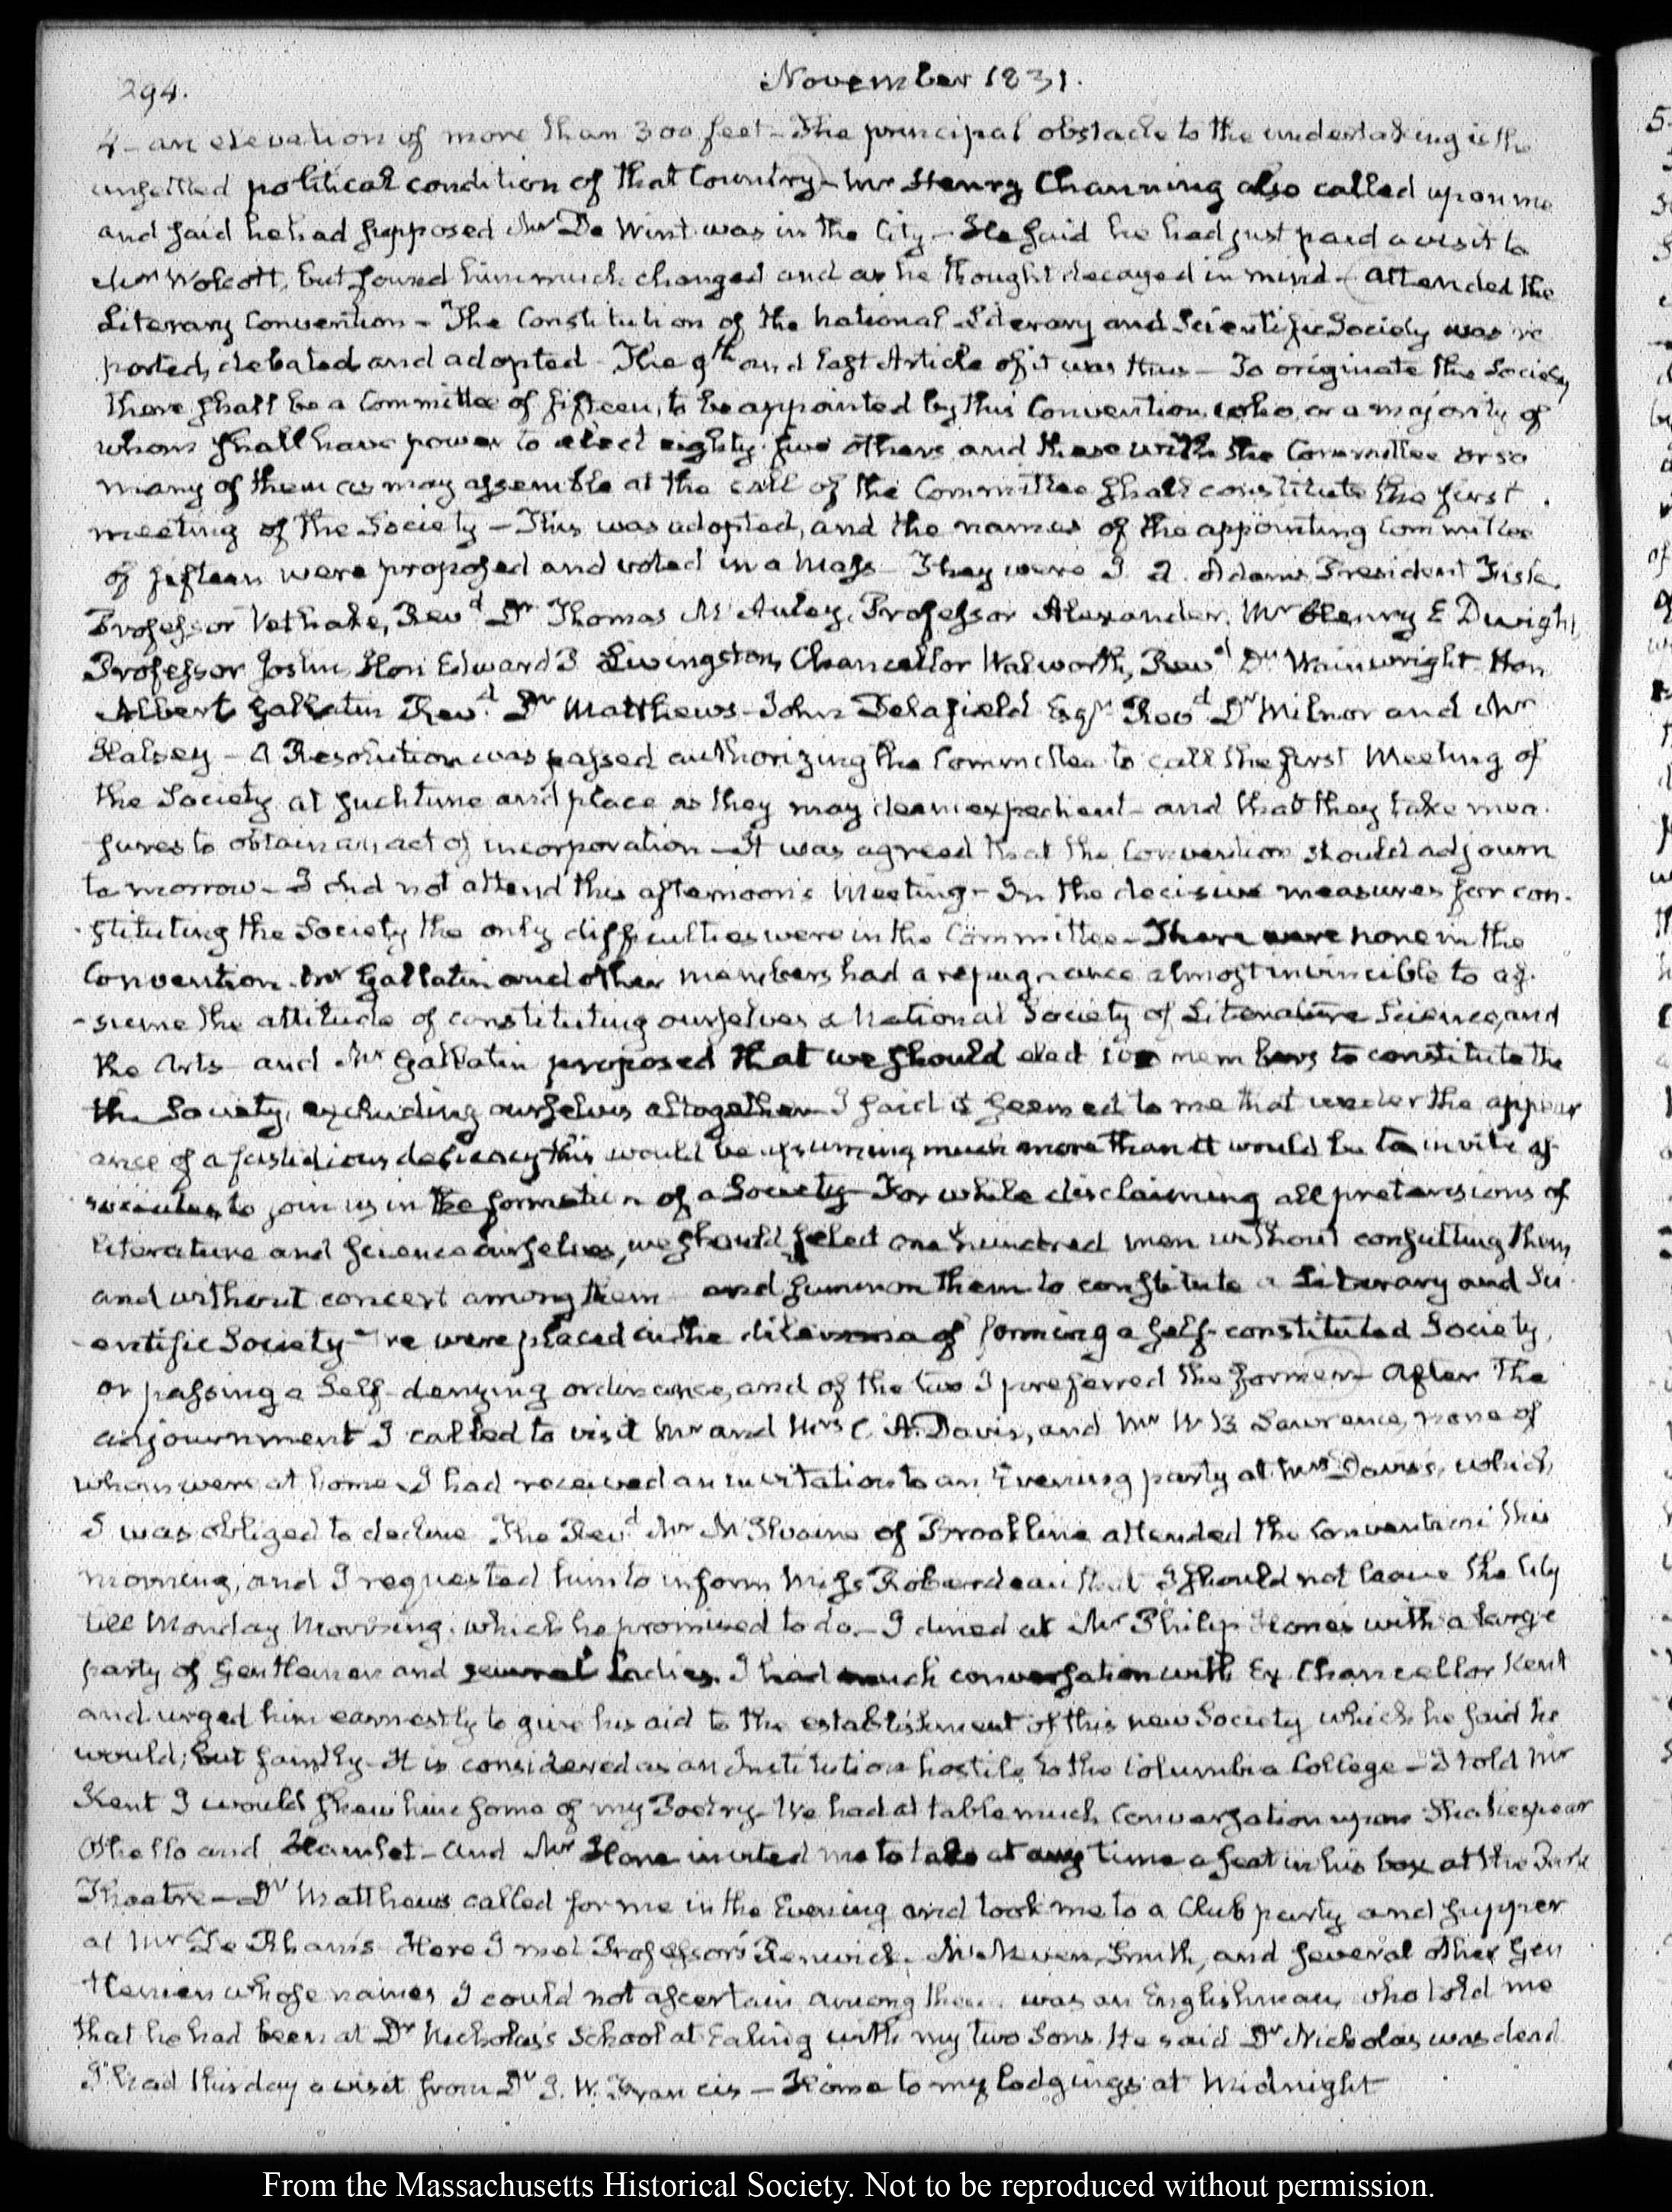 294.
November 1831.
4 - an elevation of more than 300 feet - The principal obstacle to the undertaking is the
unsettled political condition of that Country - Mr Henry Channing also called upon me
and said he had supposed Mr De Wint was in the City - He said he had just paid a visit to
Mr Wolcott, but found him much changed and as he thought decayed in mind - Attended the
Literary Convention - The Constitution of the National Literary and Scientific Society was re
ported, debated and adopted - The 9th and last Article of it was thus - To originate the Society
there shall be a Committee of fifteen, to be appointed by this Convention, who, or a majority of
whom shall have power to elect eighty-five others and these with the Committee or so
many of them as may assemble at the call of the Committee shall constitute the first
meeting of the Society - This was adopted, and the names of the appointing Committee
of fifteen were proposed and voted in a Mass - They were J. Q. Adams, President Fisk,
Professor Vethake, Revd Dr Thomas McAuley, Professor Alexander, Mr Henry E Dwight,
Professor Joslin, Hon Edward Livingston, Chancellor Walworth, Revd Dr Wainwright Hon
Albert Gallatin Revd. Dr Matthews - John Delafield Esqr Revd Dr Milnor and Mr
Halsey - A Resolution was passed authorizing the Committee to call the first Meeting of
the Society at such time and place as they may deem expedient - and that they take mea-
sures to obtain an act of incorporation - It was agreed that the Convention should adjourn
to morrow - I did not attend this afternoon's Meeting - In the decisive measures for con-
-stituting the Society the only difficulties were in the Committee - There were none in the
Convention. Mr Gallatin and other members had a repugnance almost invincible to as-
-sume the attitude of constituting ourselves a National Society of Literature Science, and
the Arts - and Mr Gallatin proposed that we should elect 100 members to constitute the
the Society, excluding ourselves altogether I said it seemed to me that under the appear
ance of a fastidious delicacy this would be assuming much more than it would be to invite as-
sociates to join us in the formation of a Society - For while disclaiming all pretensions of
literature and science ourselves, we should select one hundred men without consulting them,
and without concert among them - and summon them to constitute a Literary and Sci-
-entific Society - we were placed in the dilemma of forming a self-constituted Society,
or passing a Self-denying ordinance, and of the two I preferred the former - After the
adjournment I called to visit Mr and Mrs C. A. Davis, and Mr W B Lawrence, none of
whom were at home - I had received an invitation to an Evening party at Mrs Davis's, which
I was obliged to decline The Revd Mr McIlvaine of Brookline attended the Convention this
morning, and I requested him to inform Miss Roberdeau that I should not leave the City
till Monday Morning. which he promised to do. - I dined at Mr Philip Hone's with a large
party of Gentlemen and several Ladies. I had much conversation with Ex Chancellor Kent
and urged him earnestly to give his aid to the establishment of this new Society which he said he
would; but faintly - It is considered as an Institution hostile to the Columbia College - I told Mr
Kent I would shew him some of my Poetry - We had at table much Conversation upon Shakespear
Othello and Hamlet - And Mr Hone invited me to take at any time a seat in his box at the Park
Theatre - Dr Matthews called for me in the Evening and took me to a Club party and supper
at Mr De Rham's Here I met Professors Renwick, McNeven, Smith, and several other Gen
tlemen whose names I could not ascertain, among them was an Englishman, who told me
that he had been at Dr Nicholas's School at Ealing with my two Sons. He said Dr Nicholas was dead
I had this day a visit from Dr J. W. Francis - Home to my lodgings at Midnight
From the Massachusetts Historical Society. Not to be reproduced without permission.